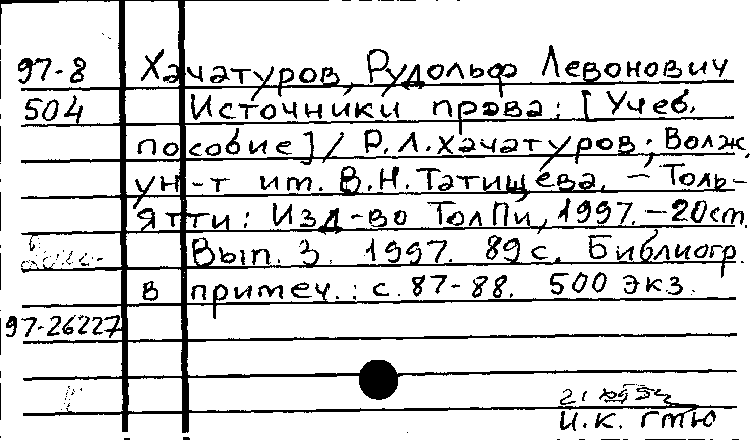 97-8 Хачатуров, Рудольф Левонович
504 Источники права: [Учеб.
пособие] / Р.Л.Хачатуров; Волж.
ун-т им. В.Н.Татищева. – Толь-
ятти: Изд-во ТолПи, 1997. – 20см.
Вып. 3. 1997. 89 с. Библиогр.
в примеч.: с. 87-88. 500 экз.
97-26227
И.К. ГМЮ